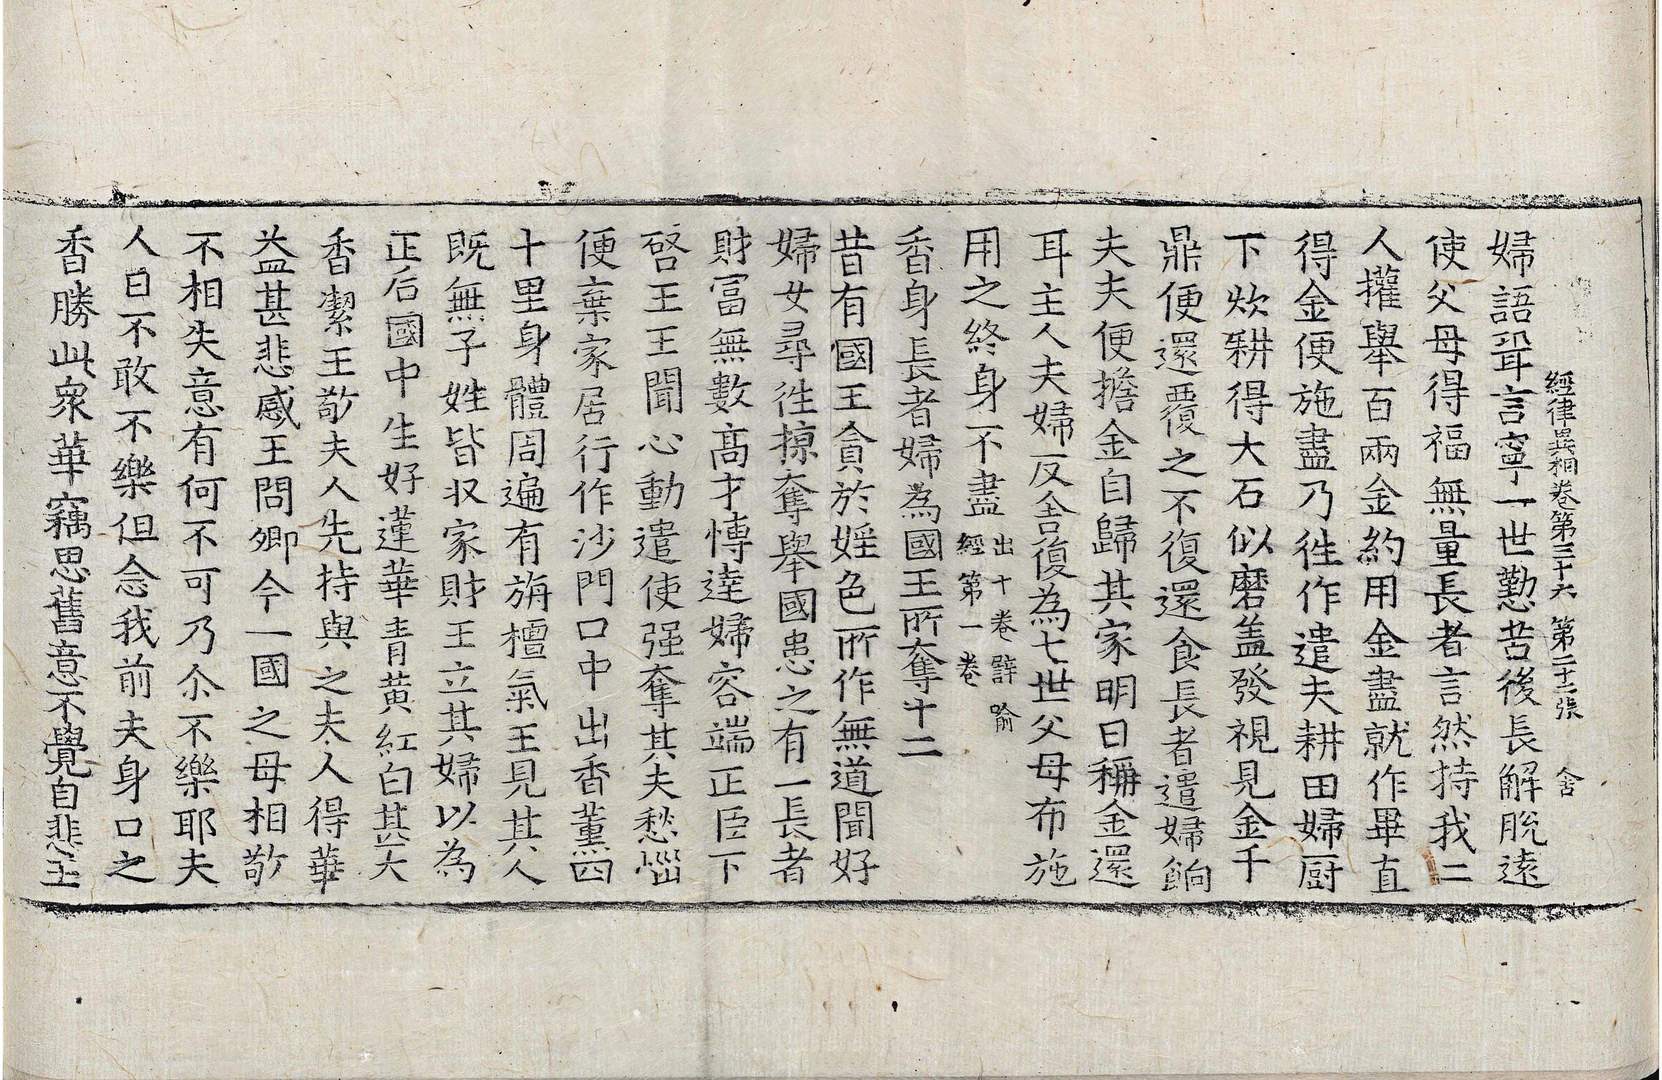 經律異相卷第三十六 第二十二張 舍
婦語聟言寧一世懃苦後長解脫遠
使父母得福無量長者言然持我二
人攉舉百兩金約用金盡就作畢直
得金便施盡乃徃作遣夫耕田婦厨
下炊耕得大石似磨盖發視見金千
鼎便還覆之不復還食長者遣婦餉
夫夫便擔金自歸其家明日稱金還
耳主人夫婦反舍復為七世父母布施
用之終身不盡出十卷譬喻經第一卷
香身長者婦為國王所奪十二
昔有國王貪於婬色所作無道聞好
婦女尋徃掠奪舉國患之有一長者
財冨無數高才博達婦容端正臣下
啓王王聞心動遣使强奪其夫愁惱
便棄家居行作沙門口中出香薰四
十里身體周遍有旃檀氣王見其人
既無子姓皆収家財王立其婦以為
正后國中生好蓮華青黄紅白甚大
香潔王敬夫人先持與之夫人得華
益甚悲感王問卿今一國之母相敬
不相失意有何不可乃尒不樂耶夫
人曰不敢不樂但念我前夫身口之
香勝此衆華竊思舊意不覺自悲王